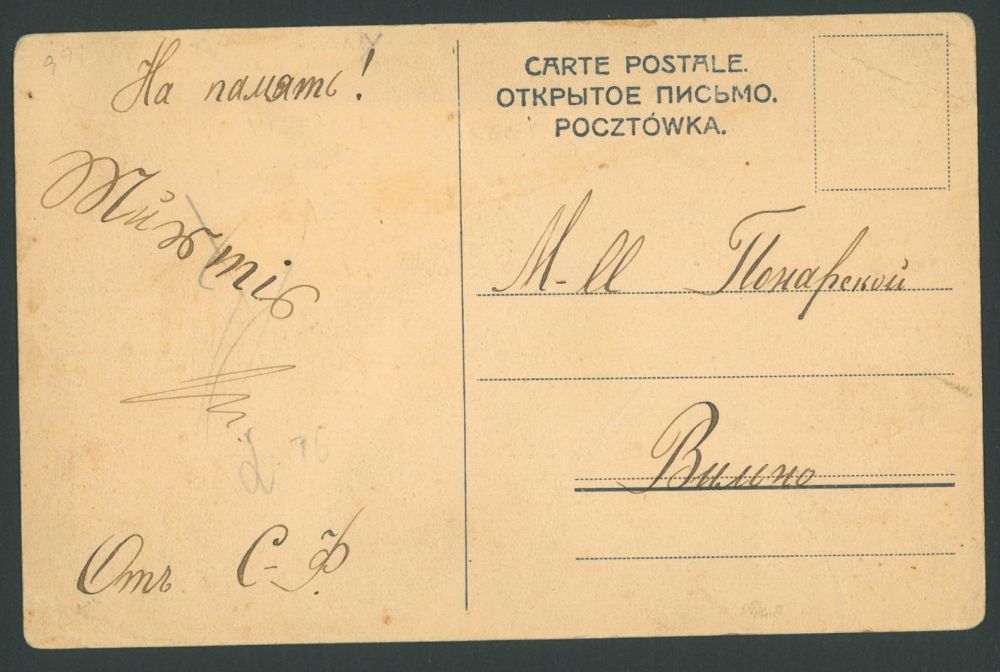 На память!
Отъ С-Ф.
CARTE POSTALE.
ОТКРЫТОЕ ПИСЬМО.
POCZTÓWKA.
M-ll Понарской
Вильно